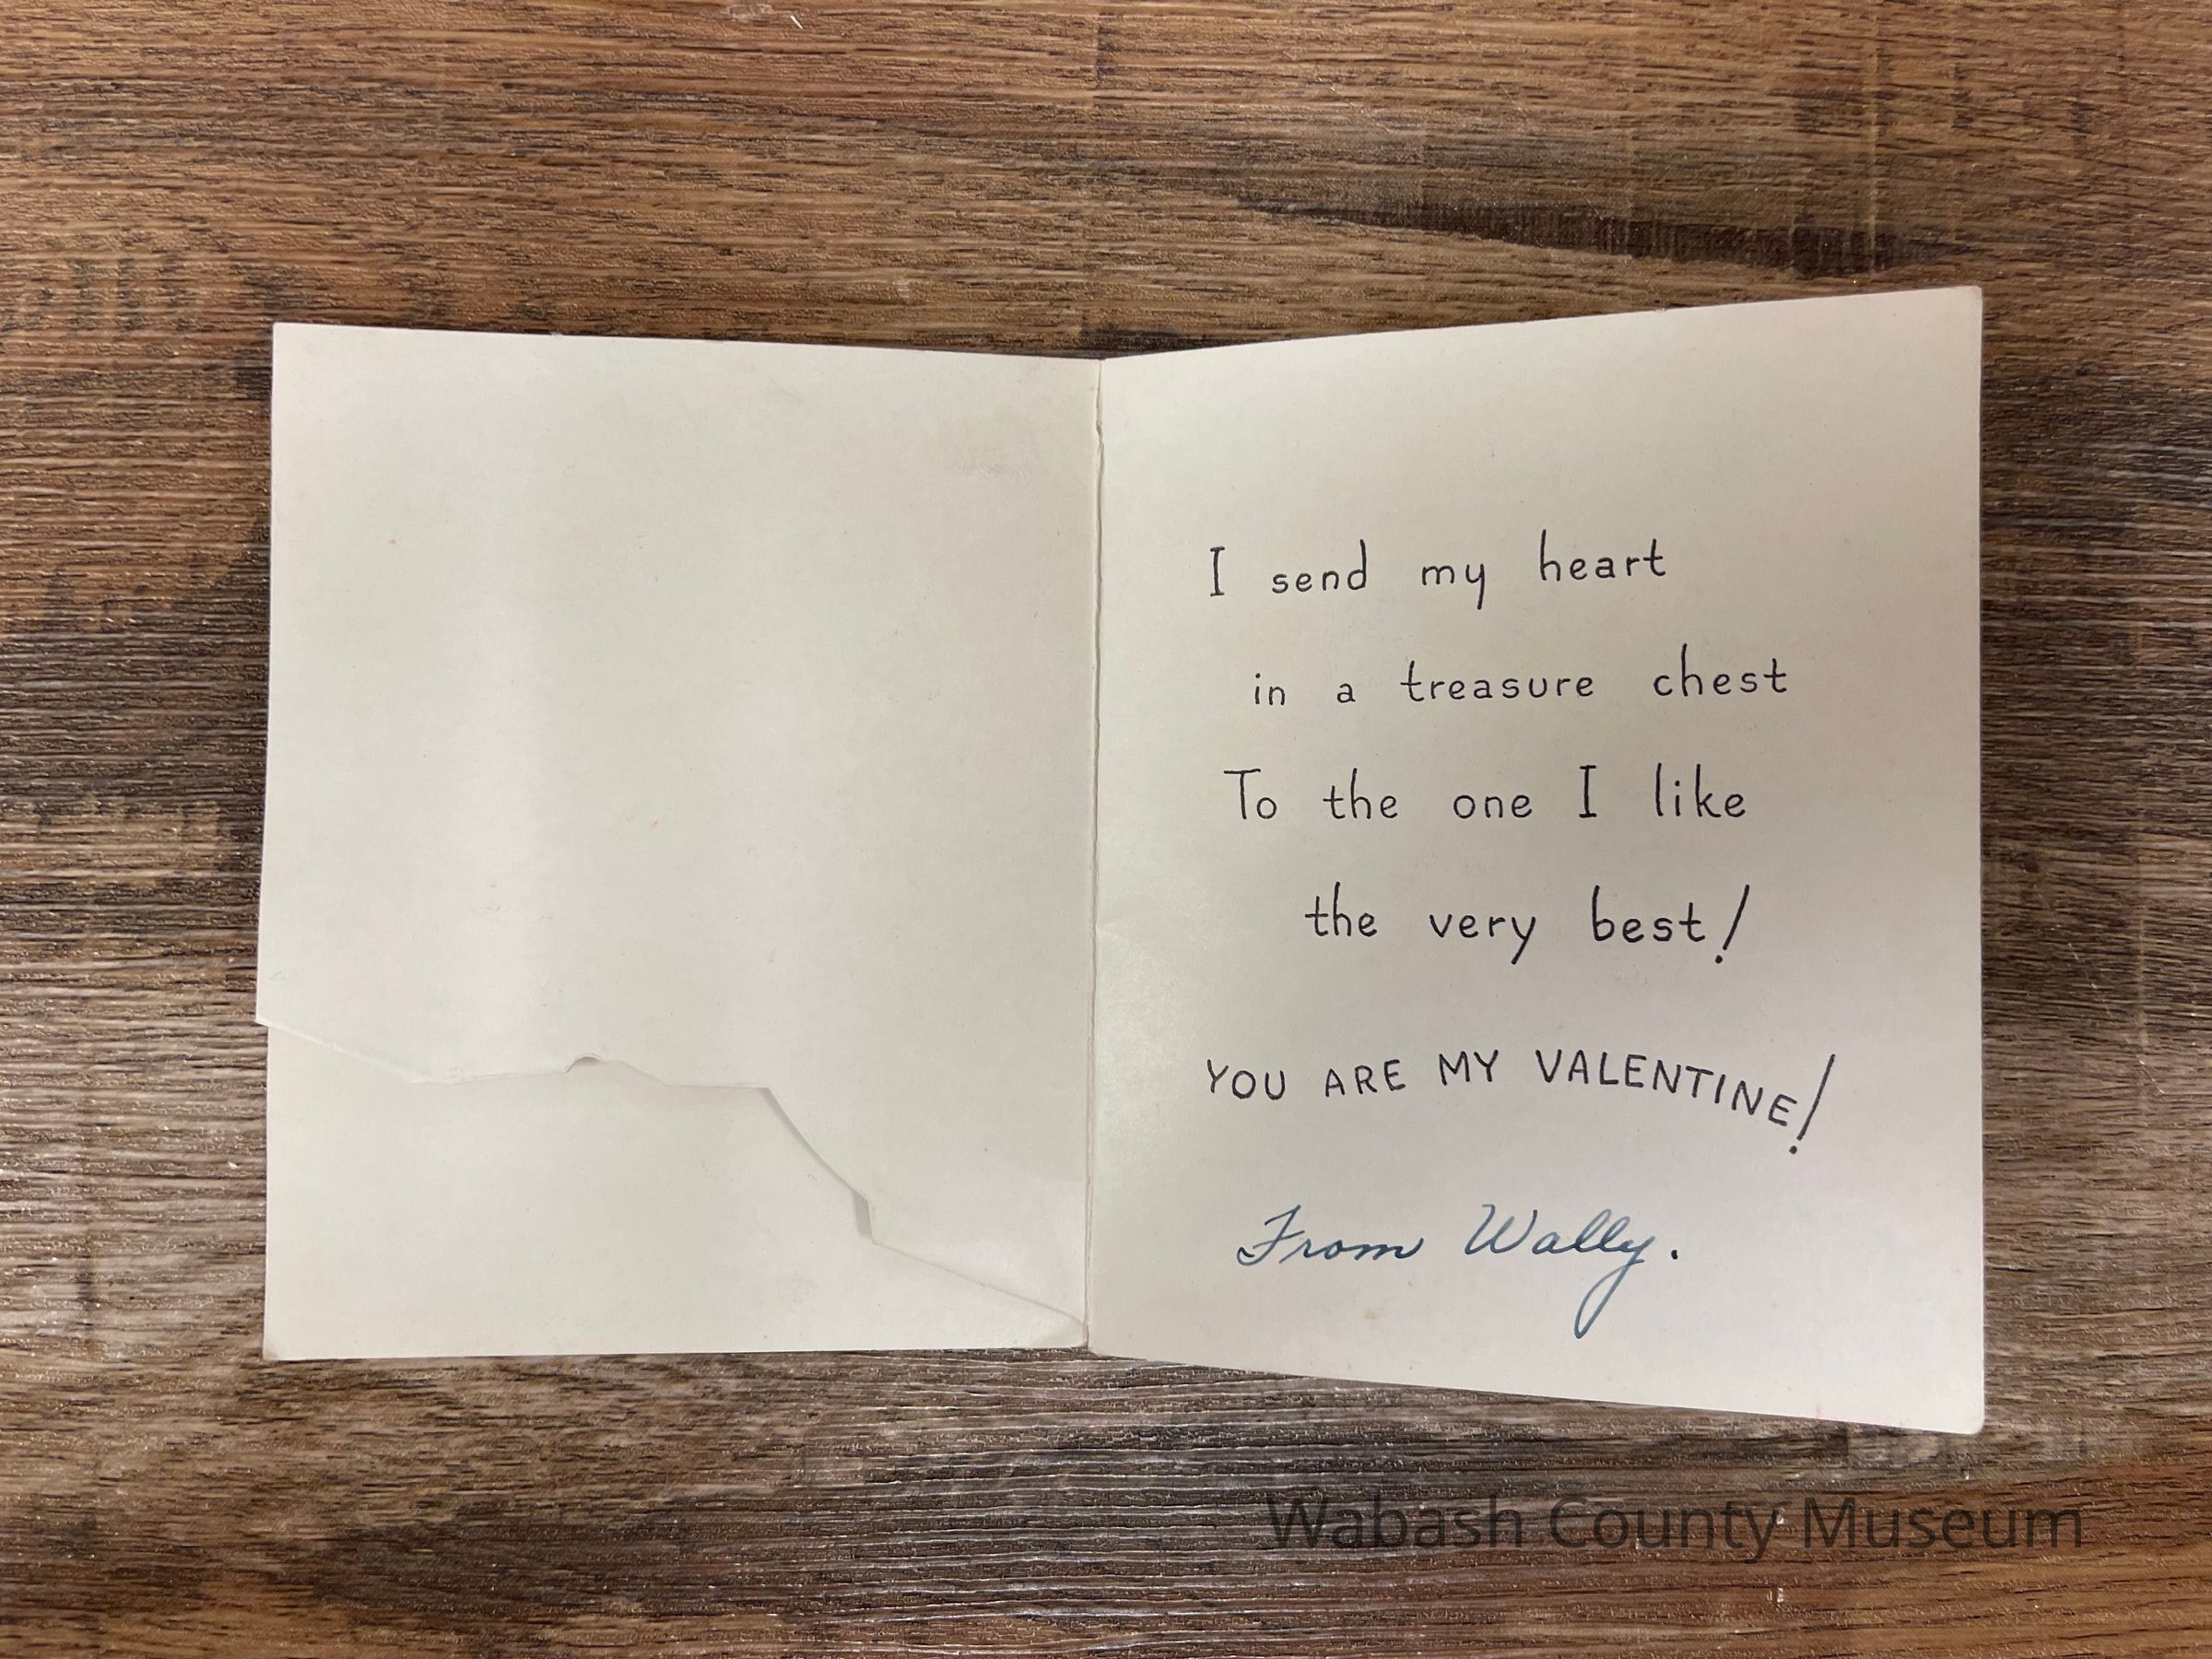 I send my heart
in a treasure chest
To the one I like
the very best!
YOU ARE MY VALENTINE!
From Wally.
Wabash County Museum